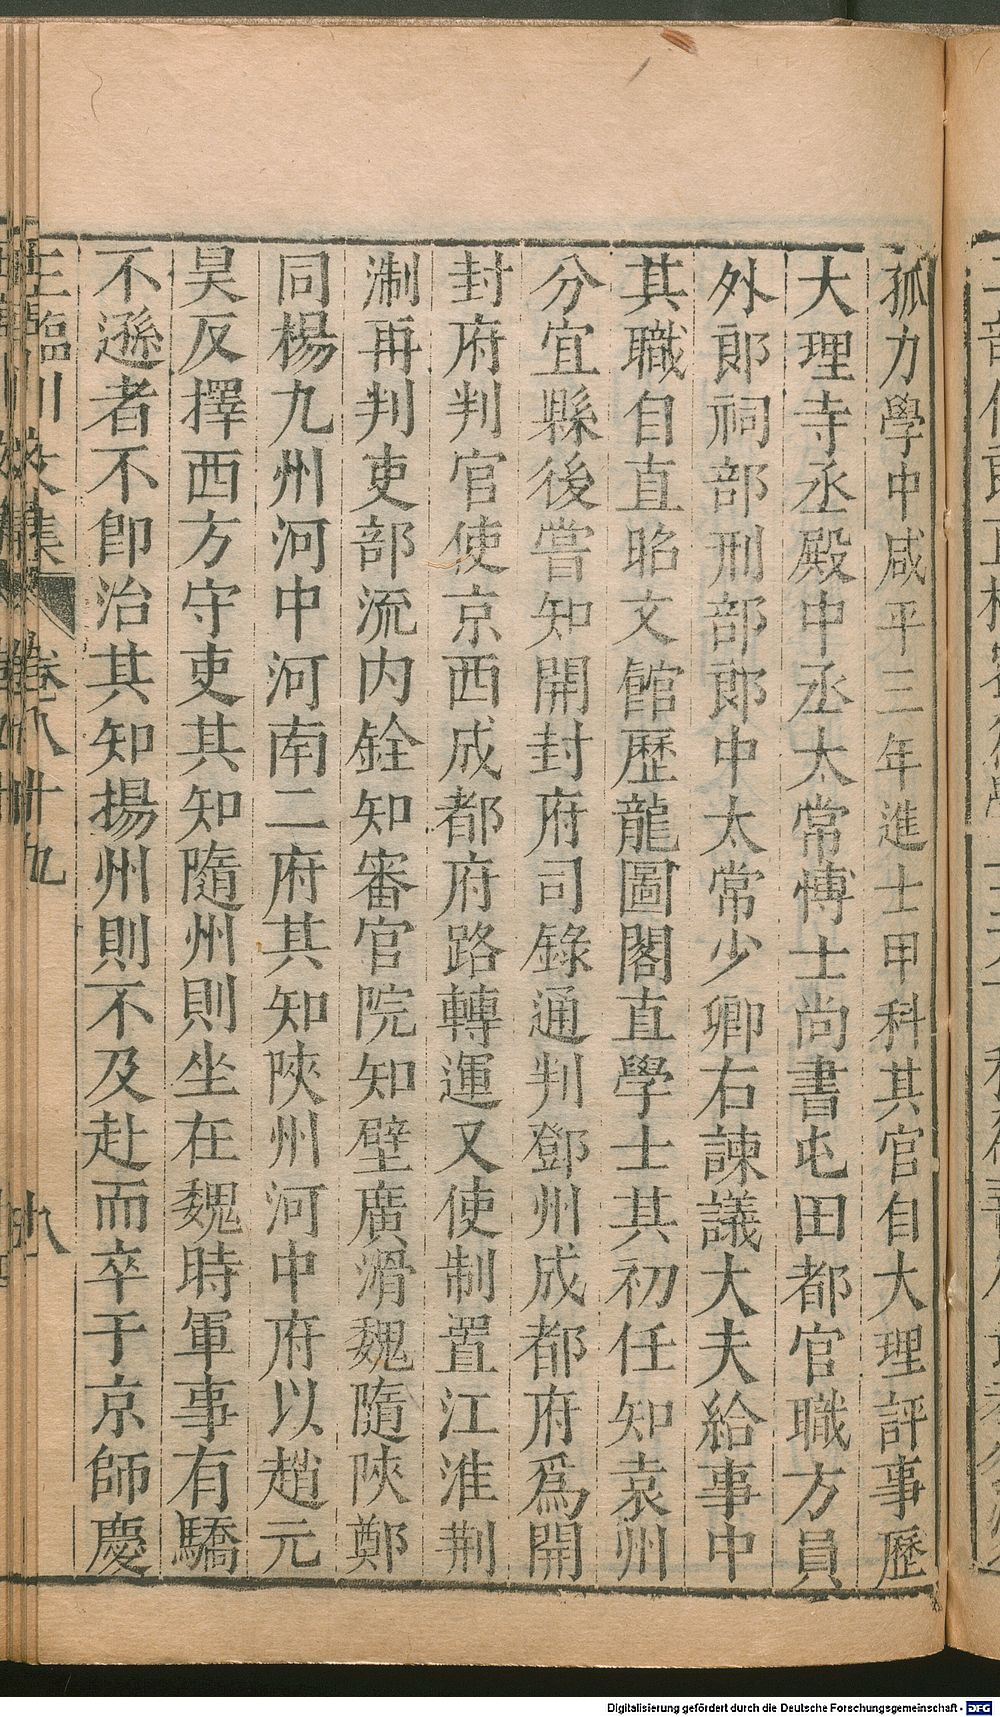 孤力學中咸平三年進士甲科其官自大理評事歷
大理寺丞殿中丞太常博士尚書屯田都官職方員
外郎祠部刑部郎中太常少卿右諫議大夫給事中
其職自直昭文館歷龍圖閣直學士其初任知袁州
分宜縣後嘗知開封府司錄通判鄧州成都府爲開
封府判官使京西成都府路轉運又使制置江淮荆
淛再判吏部流内銓知審官院知壁廣滑魏隨陝鄭
同楊九州河中河南二府其知陝州河中府以趙元
昊反擇西方守吏其知隨州則坐在魏時軍事有驕
不遜者不卽治其知揚州則不及赴而卒于京師慶
王臨川文集 卷八十九 十八
Digitalisierung gefördert durch die Deutsche Forschungsgemeinschaft - DFG